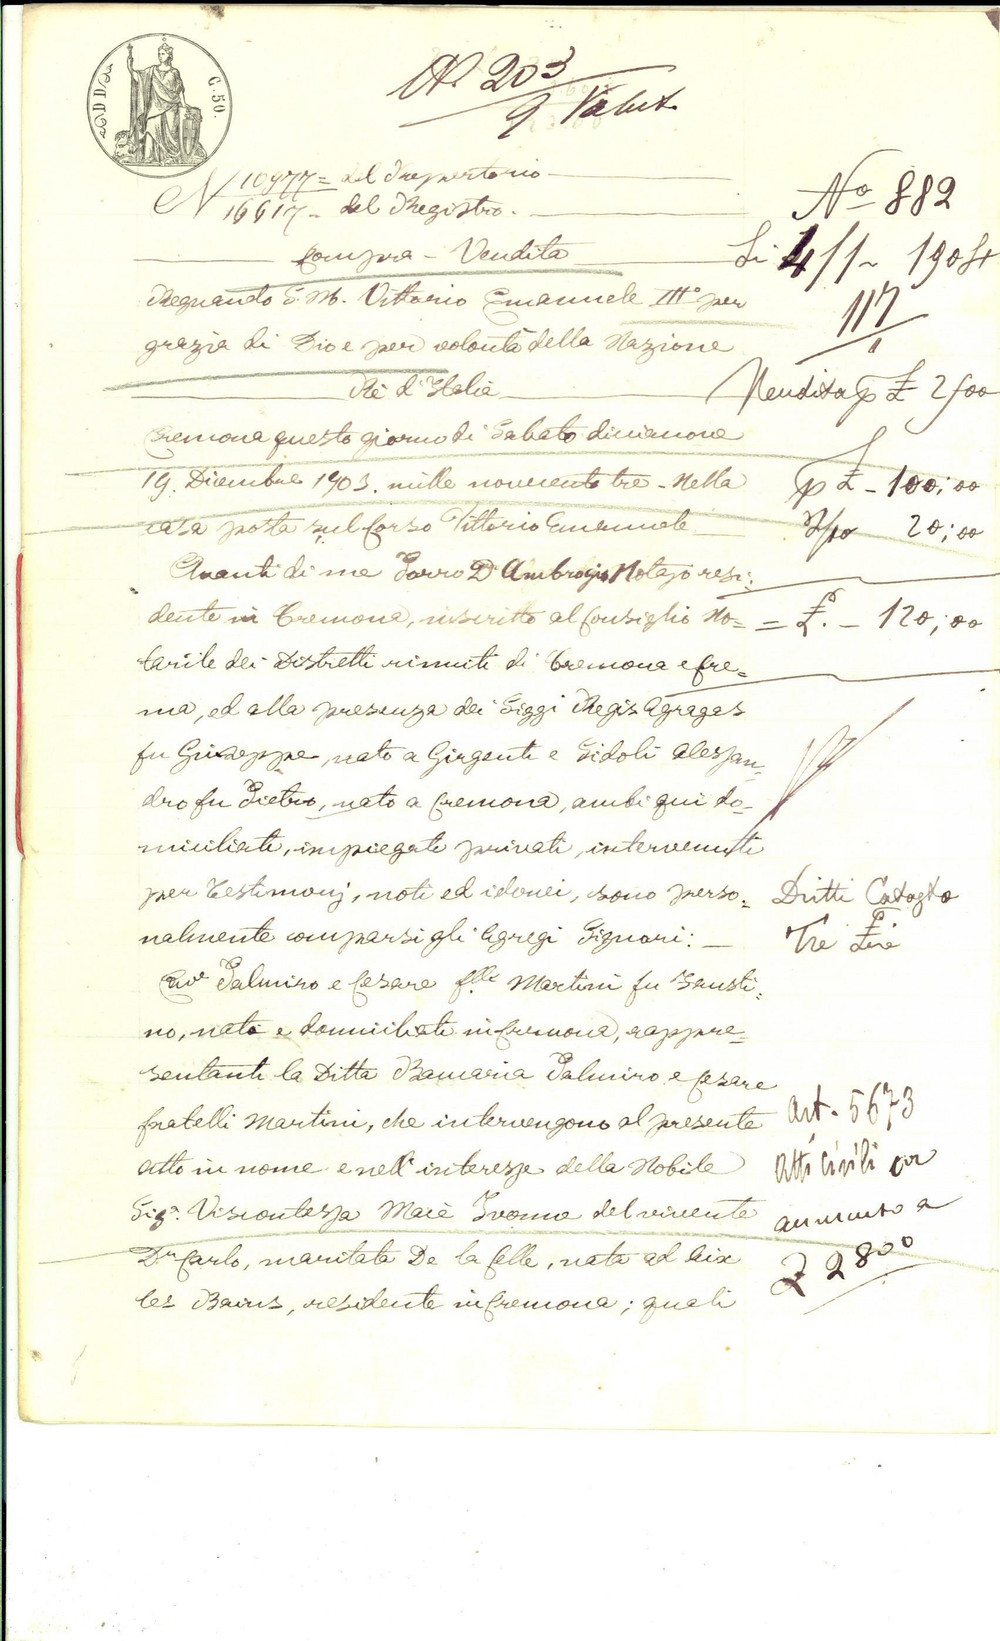 C. 50.
N. 203
9 Valut.
N 10977 = del Repertorio
16617 - del Registro.
Compra - Vendita
Regnando S. M. Vittorio Emanuele III° per
grazia di Dio e per volontà della Nazione
Rè d'Italia
Cremona questo giorno di Sabato diecianove
19. Diciembre 1903. mille novecento tre - Nella
casa posta sul Corso Vittorio Emanuele
Avanti di me Porro Dr Ambrogio Notajo resi=
dente in Cremona, inscritto al Consiglio No=
tarile dei Distretti riuniti di Cremona e Cre=
ma, ed alla presenza dei Siggi Regis Agragas
fu Giuseppe, nato a Girgenti e Sidoli Alessan=
dro fu Pietro, nato a Cremona, ambi qui do-
miciliati, impiegati privati, intervenuti
per testimonj, noti ed idonei, sono perso=
nalmente comparsi gli Egregi Signori: -
Cav. Palmiro e Cesare flli Martini fu Fausti=
no, nati e domiciliati in Cremona, rappre=
sentanti la Ditta Bancaria Palmiro e Cesare
fratelli Martini, che intervengono al presente
atto in nome e nell'interesse della Nobile
Sigra. Viscontessa Maiè Ivonne del vivente
Dr Carlo, maritata De la Celle, nata ad Aix
les Bains, residente in Cremona; quali
No 882
Li 4/1 - 1904
117
Vendita p £ 2500
p £ - 100;00
2/10 20;00
= £. - 120;00
Dritti Catasto
Tre Lire
Art. 5673
Atti Civili
aumento a
£ 2800